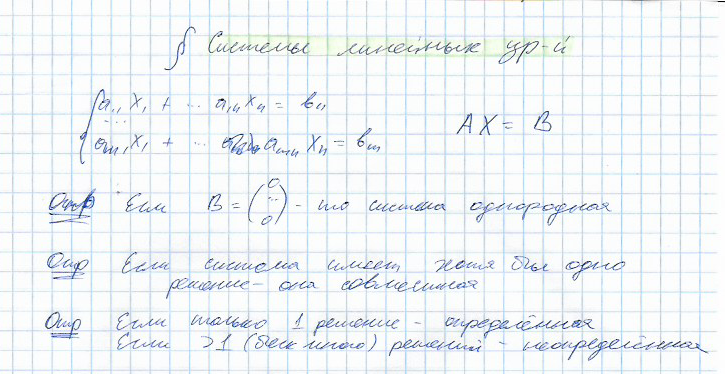 § Системы линейных ур-й
a₁₁ x₁ + ... a₁ₙ xₙ = b₁₁
...
aₘ₁ x₁ + ... aₘₙ xₙ = bₘ
AX = B
Опр Если B = (0 ... 0) - то система однородная
Опр Если система имеет хотя бы одно
решение - она совместная
Опр Если только 1 решение - определённая
Если >1 (беск много) решений - неопределённая